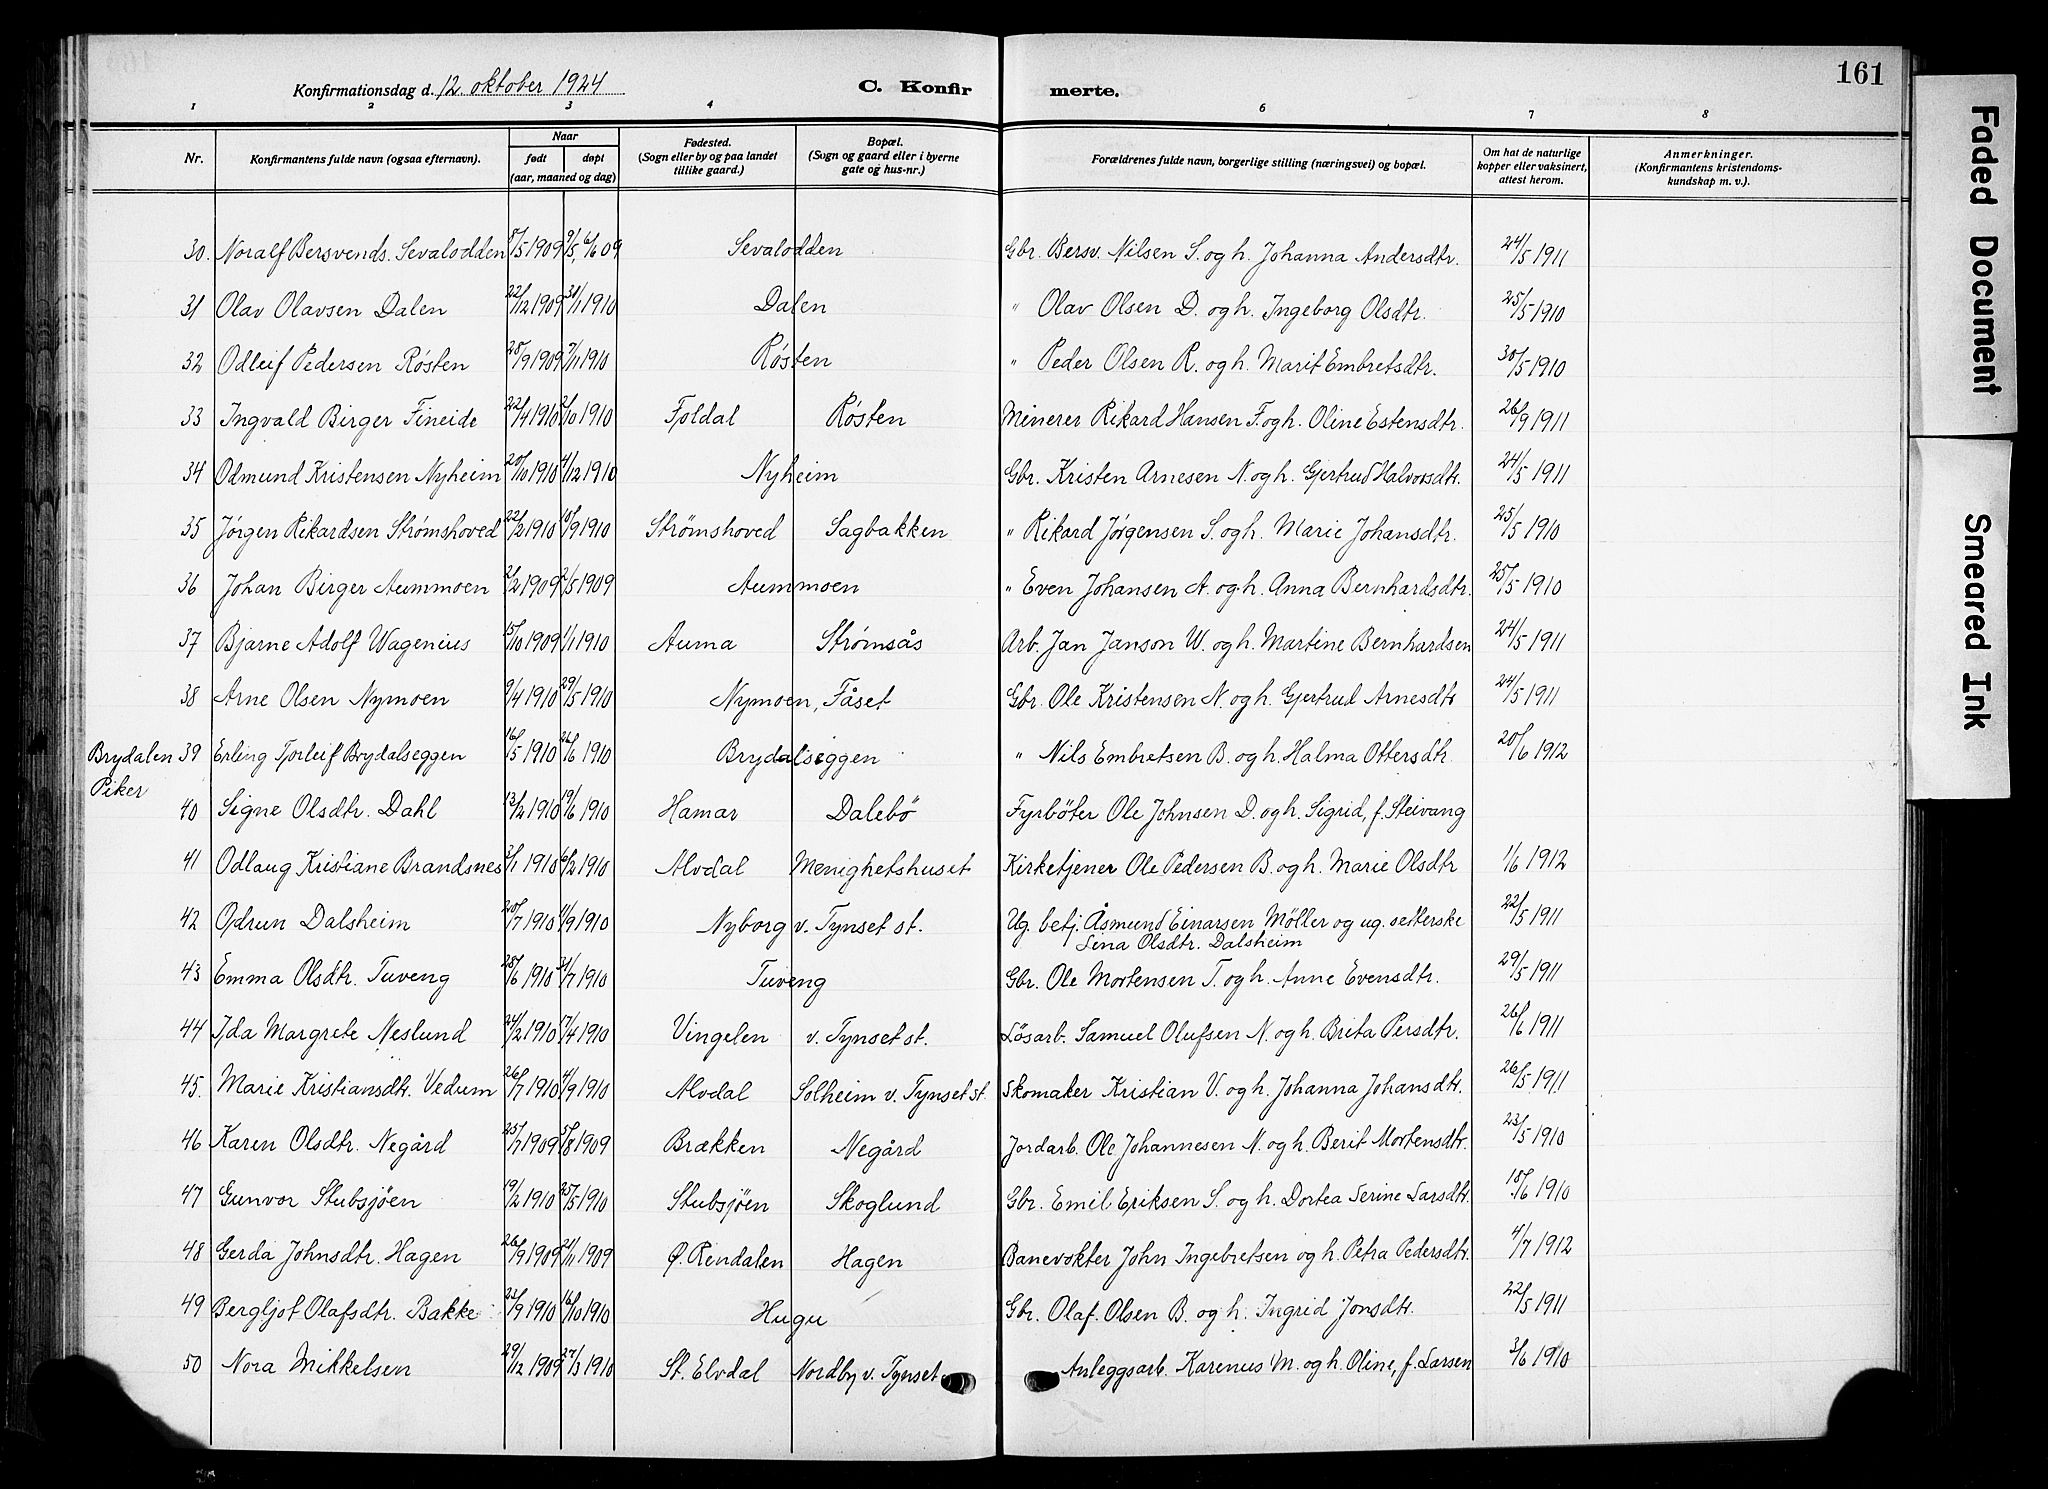 161
Konfirmationsdag d. 12. oktober 1924 C. Konfirmerte.
1 2 3 4 6 7 8
Nr. Konfirmantens fulde navn (ogsaa efternavn). Naar født døpt (aar, maaned og dag) Fødested. (Sogn eller by og paa landet tillike gaard.) Bopæl. (Sogn og gaard eller i byerne gate og hus-nr.) Forældrenes fulde navn, borgerlige stilling (næringsvei) og bopæl. Om hat de naturlige kopper eller vaksinert, attest herom. Anmerkninger. (Konfirmantens kristendoms-kundskap m. v.).
30. Noralf Bersvends. Sevalodden 5/5 1909 9/5, 6/6 09 Sevalodden Gbr. Bersv. Nilsen S. og h. Johanna Andersdtr. 24/5 1911
31 Olav Olavsen Dalen 22/12 1909 31/1 1910 Dalen " Olav Olsen D. og h. Ingeborg Olsdtr. 25/5 1910
32 Odleif Pedersen Røsten 28/9 1909 7/11 1910 Røsten " Peder Olsen R. og h. Marit Embretsdtr. 30/5 1910
33 Ingvald Birger Fineide 22/4 1910 2/10 1910 Foldal Røsten Minerer Rikard Hansen F. og h. Oline Estensdtr. 26/9 1911
34 Odmund Kristensen Nyheim 20/10 1910 4/12 1910 Nyheim Gbr. Kristen Arnesen N. og h. Gjertrud Halvorsdtr. 24/5 1911
35 Jørgen Rikardsen Strømshoved 22/2 1910 18/9 1910 Strømshoved Sagbakken " Rikard Jørgensen S. og h. Marie Johansdtr. 25/5 1910
36 Johan Birger Aummoen 2/2 1909 2/5 1909 Aummoen " Even Johansen A. og h. Anna Bernhardsdtr. 25/5 1910
37 Bjarne Adolf Wagenius 15/10 1909 1/11 1910 Auma Strømsås Arb. Jan Janson W. og h. Martine Bernhardsen 24/5 1911
38 Arne Olsen Nymoen 9/4 1910 29/5 1910 Nymoen, Fåset Gbr. Ole Kristensen N. og h. Gjertrud Arnesdtr 24/5 1911
Brydalen 39 Erling Torleif Brydalseggen 16/5 1910 26/6 1910 Brydalseggen " Nils Embretsen B. og h. Halma Ottersdtr. 20/6 1912
Piker
40 Signe Olsdtr. Dahl 13/2 1910 19/6 1910 Hamar Dalebö Fyrböter Ole Johnsen D. og h. Sigrid, f. Steivang
41 Odlaug Kristiane Brandsnes 3/1 1910 6/2 1910 Alvdal Menighetshuset Kirketjener Ole Pedersen B. og h. Marie Olsdtr 1/6 1912
42 Odrun Dalsheim 20/7 1910 11/9 1910 Nyborg v. Tynset st. Ug. betj. Åsmund Einarsen Møller og ug. setterske 22/5 1911
Lina Olsdtr. Dalsheim
43 Emma Olsdtr. Tuveng 28/6 1910 31/7 1910 Tuveng Gbr. Ole Mortensen T. og h. Anne Evensdtr. 29/5 1911
44 Ida Margrete Neslund 24/2 1910 17/4 1910 Vingelen v. Tynset st. Løsarb. Samuel Olufsen N. og h. Brita Persdtr. 26/6 1911
45. Marie Kristiansdtr. Vedum 26/7 1910 4/9 1910 Alvdal Solheim v. Tynset st. Skomaker Kristian V. og h. Johanna Johansdtr. 26/5 1911
46 Karen Olsdtr. Negård 25/7 1909 5/8 1909 Brækken Negård Jordarb. Ole Johannesen N. og h. Berit Mortensdtr. 23/5 1910
47 Gunvor Stubsjöen 19/2 1910 25/5 1910 Stubsjöen Skoglund Gbr. Emil Eriksen S. og h. Dortea Serine Larsdtr. 18/6 1910
48 Gerda Johnsdtr. Hagen 26/9 1909 21/11 1909 Ø. Rendalen Hagen Banevokter John Ingebretsen og h. Petra Pedersdtr. 4/7 1912
49 Bergljot Olafsdtr. Bakke 23/9 1910 16/10 1910 Hugu Gbr. Olaf Olsen B. og h. Ingrid Jonsdtr. 22/5 1911
50 Nora Mikkelsen 29/12 1909 27/3 1910 St. Elvdal Nordby v. Tynset Anleggsarb. Karenus M. og h. Oline, f. Larsen 3/6 1910
Faded Document
Smeared Ink